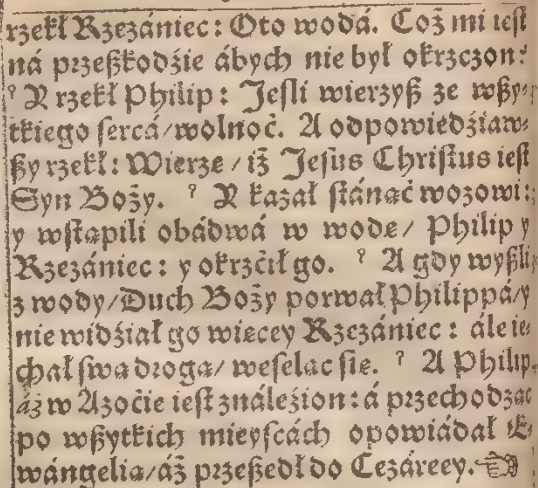 rzekł Rzezániec: Oto wodá. Coż mi iest
ná przeßkodźie ábych nie był okrzczon?
? Y rzekł Philip: Jesli wierzyß ze wßy-
tkiego sercá/wolnoć. A odpowiedźiaw-
ßy rzekł: Wierze/ iż Jesus Christus iest
Syn Boży. ? Y kazał stánąć wozowi:
y wstąpili obádwá w wode/ Philip y
Rzezániec: y okrzćił go. ? A gdy wyßli
z wody/Duch Boży porwał Philippá/y
nie widźiał go wiecey Rzezániec: ále ie-
chał swa droga/ weselac sie. ? A Philip
áż w Azoćie iest ználeźion: á przechodzac
po wßytkich mieyscách opowiádał E-
wángelia/áż przeßedł do Cezáreey.